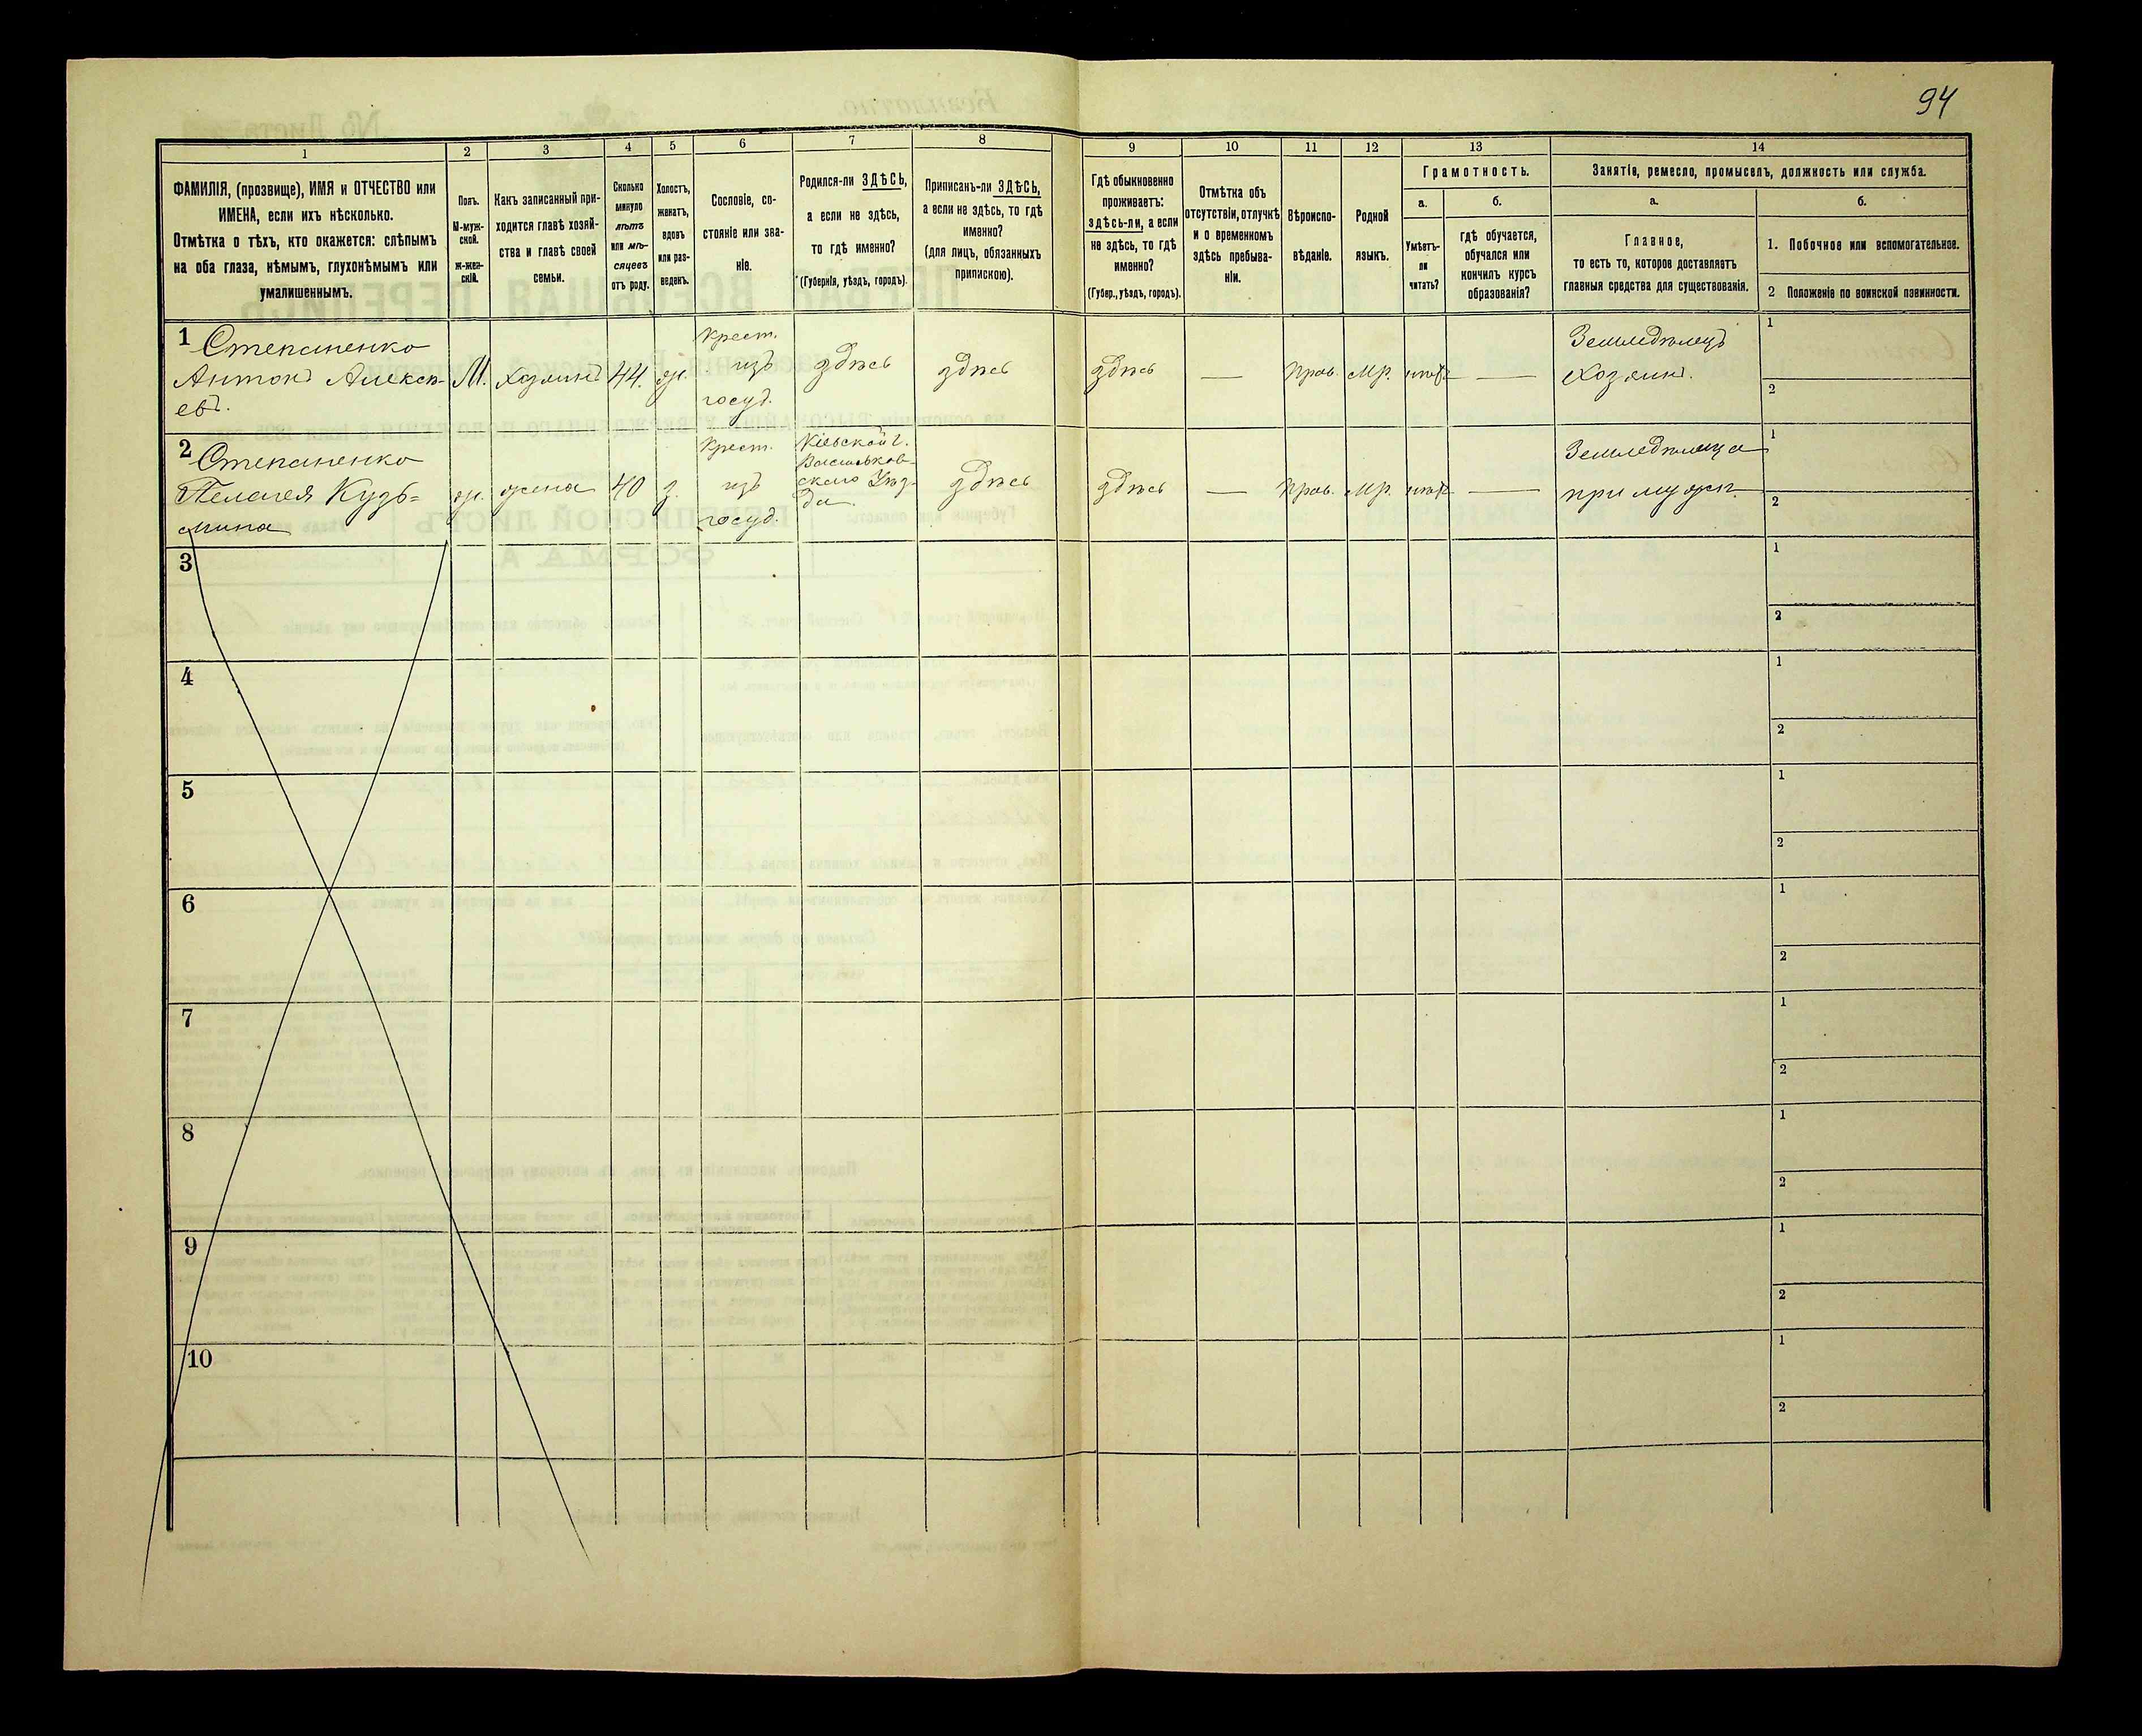 94
1 2 3 4 5 6 7 8 9 10 11 12 13 14
ФАМИЛІЯ, (прозвище), ИМЯ и ОТЧЕСТВО или
ИМЕНА, если ихъ нѣсколько.
Отмѣтка о тѣхъ, кто окажется: слѣпымъ
на оба глаза, нѣмымъ, глухонѣмымъ или
умалишеннымъ.
Полъ.
М-муж-
ской.
Ж-жен-
скій.
Какъ записанный при-
ходится главѣ хозяй-
ства и главѣ своей
семьи.
Сколько
минуло
лѣтъ
или мѣ-
сяцевъ
отъ роду.
Холостъ,
женатъ,
вдовъ
или раз-
веденъ.
Сословіе, со-
стояніе или зва-
ніе.
Родился-ли ЗДѢСЬ,
а если не здѣсь,
то гдѣ именно?
(Губернія, уѣздъ, городъ).
Приписанъ-ли ЗДѢСЬ,
а если не здѣсь, то гдѣ
именно?
(для лицъ, обязанныхъ
припискою).
Гдѣ обыкновенно
проживаетъ:
здѣсь-ли, а если
не здѣсь, то гдѣ
именно?
(Губер., уѣздъ, городъ).
Отмѣтка объ
отсутствіи, отлучкѣ
и о временномъ
здѣсь пребыва-
ніи.
Вѣроиспо-
вѣданіе.
Родной
языкъ.
Грамотность.
а.
Умѣетъ-
ли
читать?
б.
гдѣ обучается,
обучался или
кончилъ курсъ
образованія?
Занятіе, ремесло, промыселъ, должность или служба.
а.
Главное,
то есть то, которое доставляетъ
главныя средства для существованія.
б.
1. Побочное или вспомогательное.
2 Положеніе по воинской повинности.
1 Степаненко
Антонъ Алексѣ-
евъ.
М.
хозяинъ
44.
ж.
крест.
изъ
госуд.
здѣсь
здѣсь
здѣсь
—
прав.
мр.
нѣтъ
—
Земледѣлецъ
хозяинъ.
1
2
2 Степаненко
Пелагея Кузь=
мина
ж.
жена
40
з.
Крест.
изъ
госуд.
Кіевской г.
Васильков-
скаго Уѣз-
да
здѣсь
здѣсь
—
прав.
мр.
нѣтъ
—
Земледѣлица
при мужѣ.
1
2
3
1
2
4
1
2
5
1
2
6
1
2
7
1
2
8
1
2
9
1
2
10
1
2